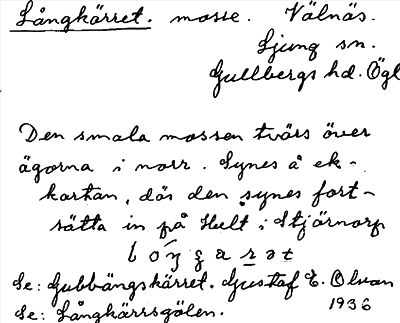 Långkärret. mosse. Välnäs.
Ljung sn.
Gullbergs hd. Ögl
Den smala mossen tvärs över
ägorna i norr. Synes å ek-
kartan, dös den synes fort-
sätta in på Hult i Stjärnorp
Se: Gubbängskärret. Gustaf E. Olson
Se: Långkärrsgölen. 1936